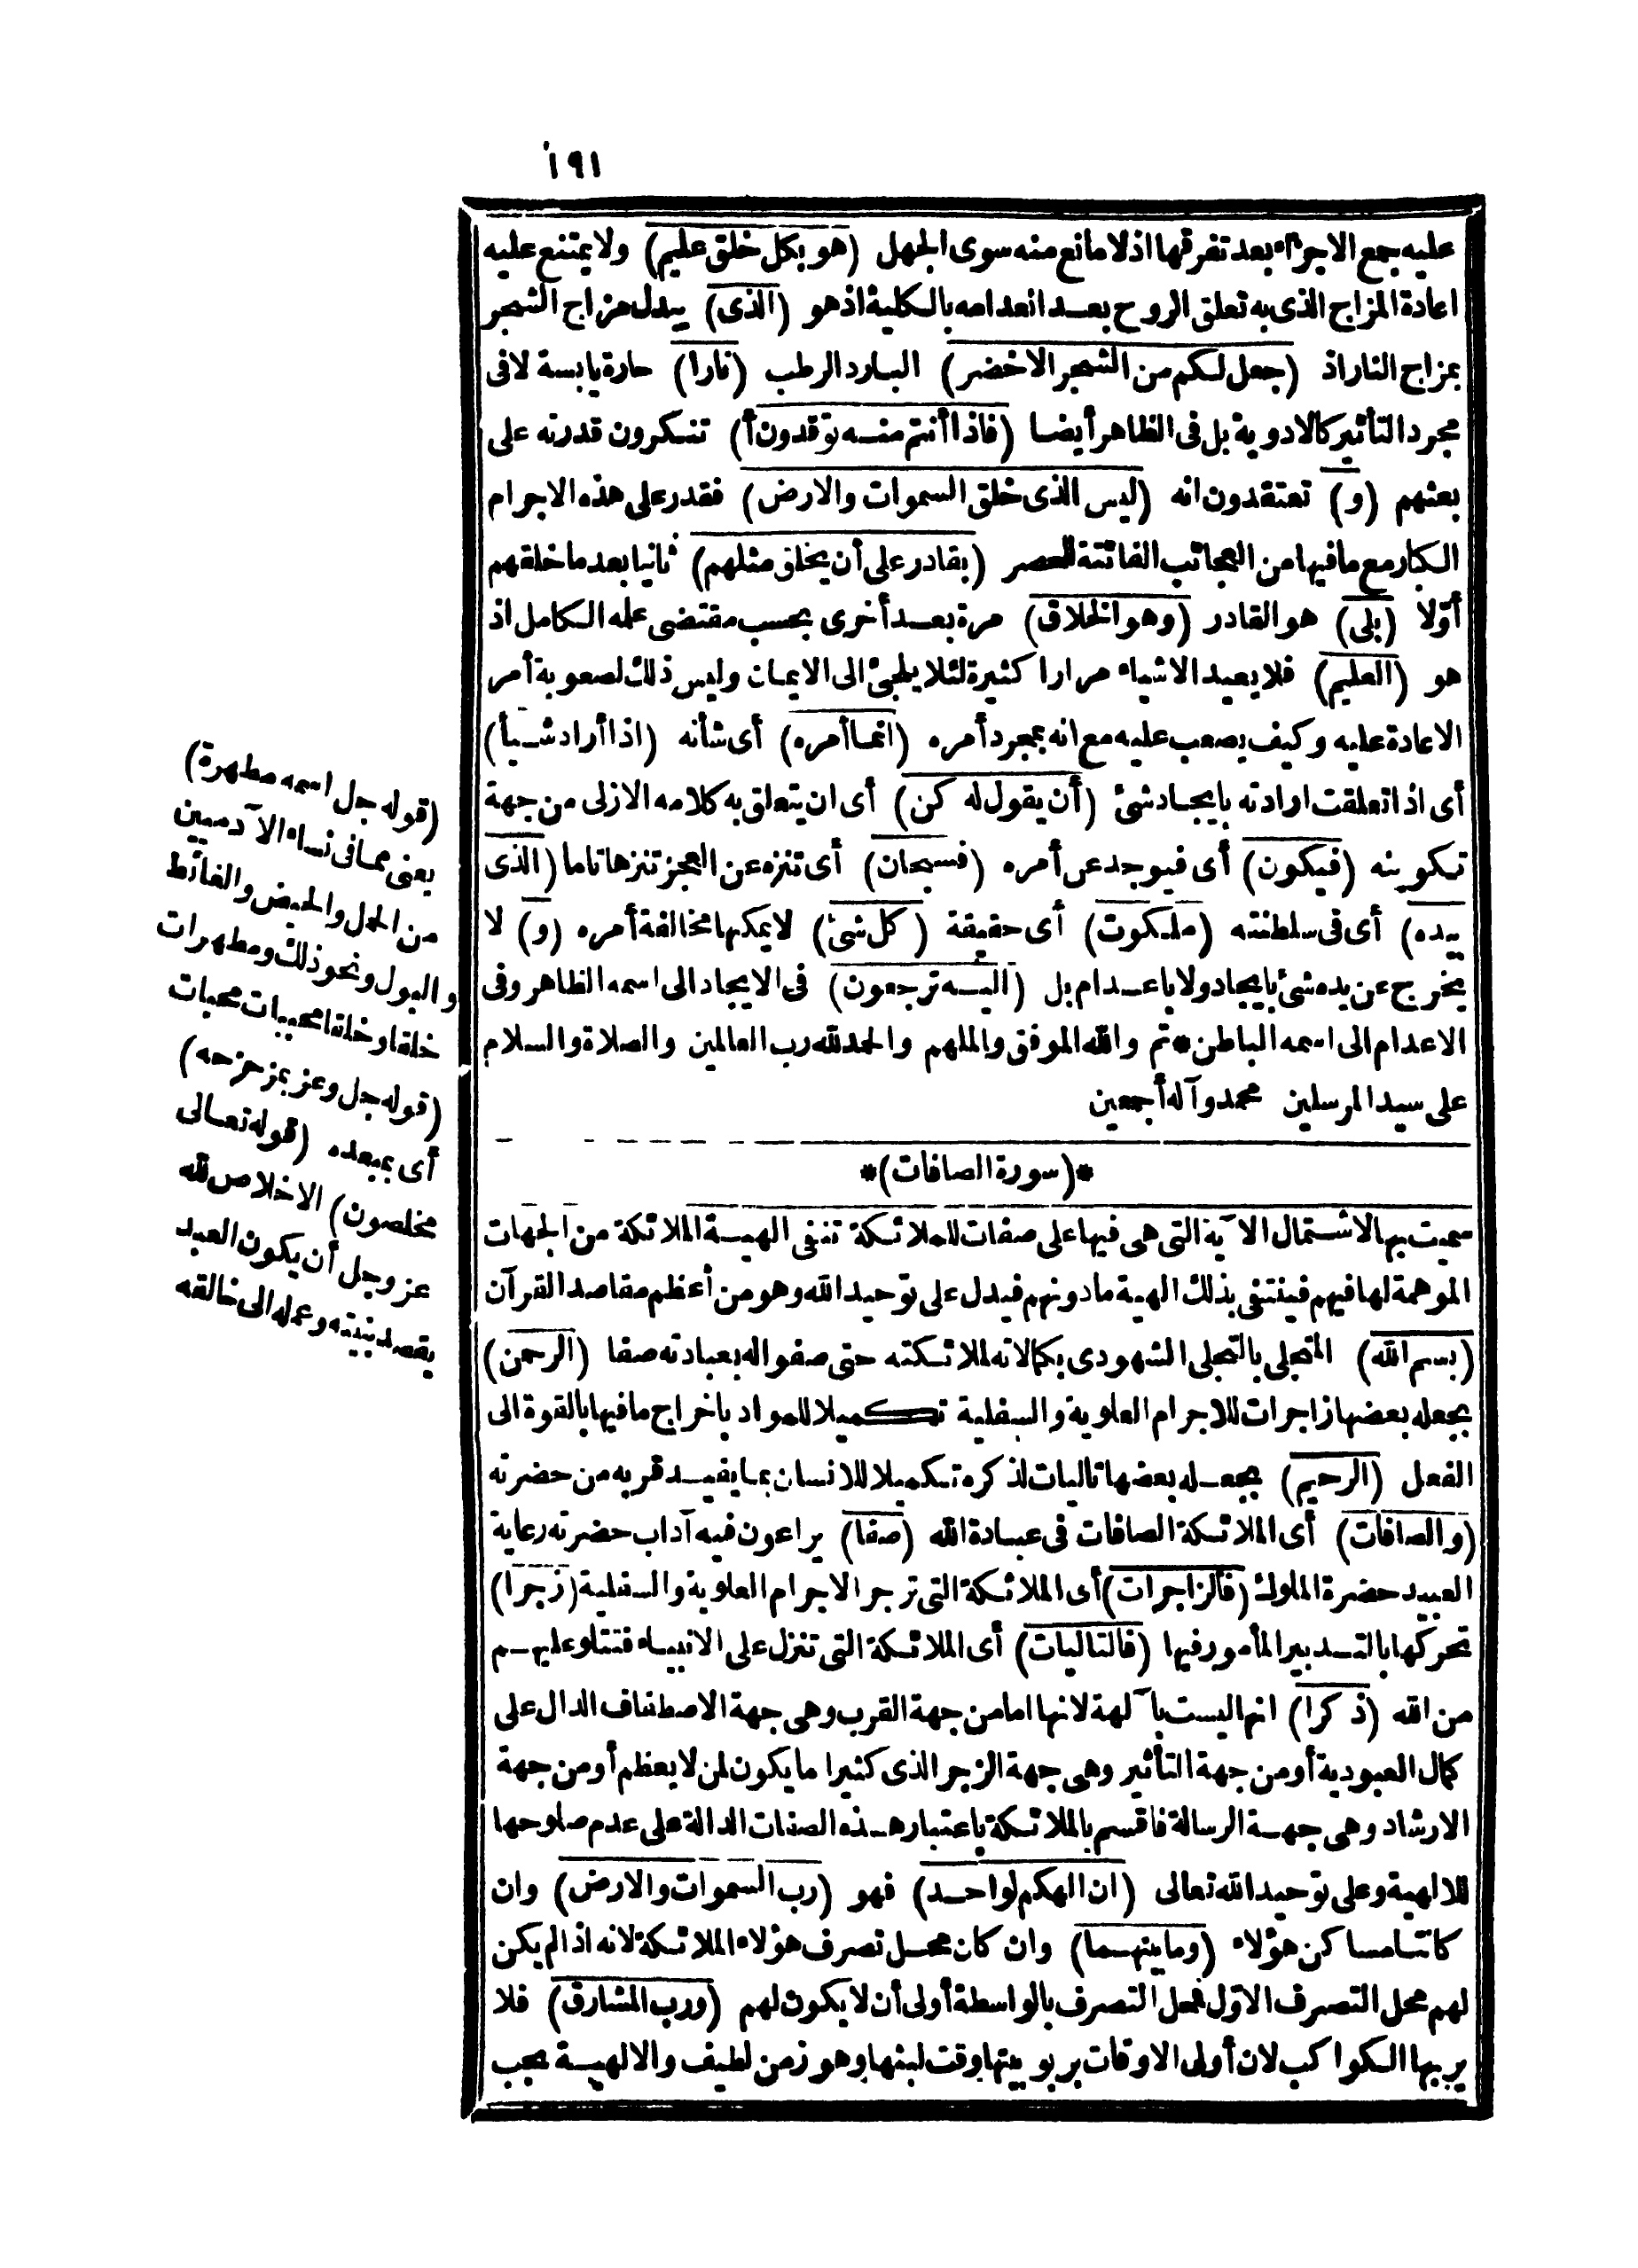 ١٩١
عليه جمع الاجزاء بعد تفرقها اذ لا مانع منه سوى الجهل (هو بكل خلق عليم) ولا يمتنع عليه
اعادة المزاج الذى به تعلق الروح بعد انعدامه بالكلية اذ هو (الذى) يبدل مزاج الشجر
بمزاج النار اذ (جعل لكم من الشجر الاخضر) البارد الرطب (نارا) حارة يابسة لا فى
مجرد التأثير كالادوية بل فى الظاهر أيضا (فاذا أنتم منه توقدون أ) تنكرون قدرته على
بعثهم (و) تعتقدون انه (ليس الذى خلق السموات والارض) فقدر على هذه الاجرام
الكبار مع ما فيها من العجائب الفائتة للحصر (بقادر على أن يخلق مثلهم) ثانيا بعد ما خلقهم
أوّلا (بلى) هو القادر (وهو الخلاق) مرة بعد أخرى بحسب مقتضى علمه الكامل اذ
هو (العليم) فلا يعيد الاشياء مرارا كثيرة لئلا يلجئ الى الايمان وليس ذلك لصعوبة أمر
الاعادة عليه وكيف يصعب عليه مع انه بمجرد أمره (انما أمره) أى شأنه (اذا أراد شيأ)
أى اذا تعلقت ارادته بايجاد شئ (أن يقول له كن) أى ان يتعلق به كلامه الازلى من جهة
تكوينه (فيكون) أى فيوجد عن أمره (فسبحان) أى تنزه عن العجز تنزها تاما (الذى
بيده) أى فى سلطنته (ملكوت) أى حقيقة (كل شئ) لا يمكنها مخالفة أمره (و) لا
يخرج عن يده شئ بايجاد ولا باعدام بل (اليه ترجعون) فى الايجاد الى اسمه الظاهر وفى
الاعدام الى اسمه الباطن * تم والله الموفق والملهم والحمد لله رب العالمين والصلاة والسلام
على سيد المرسلين محمد وآله أجمعين
*(سورة الصافات)*
سميت بها لاشتمال الآية التى هى فيها على صفات للملائكة تنفى الهية الملائكة من الجهات
الموهمة لها فيهم فينتفى بذلك الهية ما دونهم فيدل على توحيد الله وهو من أعظم مقاصد القرآن
(بسم الله) المتجلى بالتجلى الشهودى بكمالاته لملائكته حتى صفوا له بعبادته صفا (الرحمن)
بجعله بعضها زاجرات للاجرام العلوية والسفلية تكميلا للمواد باخراج ما فيها بالقوة الى
الفعل (الرحيم) بجعله بعضها تاليات لذكره تكميلا للانسان بما يفيد قربه من حضرته
(والصافات) أى الملائكة الصافات فى عبادة الله (صفا) يراعون فيه آداب حضرته رعاية
العبيد حضرة الملوك (فالزاجرات) أى الملائكة التى تزجر الاجرام العلوية والسفلية (زجرا)
تحركها بالتدبير المأمور فيها (فالتاليات) أى الملائكة التى تنزل على الانبياء فتتلو عليهم
من الله (ذكرا) انها ليست بآلهة لانها اما من جهة القرب وهى جهة الاصطفاف الدال على
كمال العبودية أو من جهة التأثير وهى جهة الزجر الذى كثيرا ما يكون لمن لا يعظم أو من جهة
الارشاد وهى جهة الرسالة فاقسم بالملائكة باعتبار هذه الصفات الدالة على عدم صلوحها
للالهية وعلى توحيد الله تعالى (ان الهكم لواحد) فهو (رب السموات والارض) وان
كانتا مساكن هؤلاء (وما بينهما) وان كان محل تصرف هؤلاء الملائكة لانه اذا لم يكن
لهم محل التصرف الاول فمحل التصرف بالواسطة أولى أن لا يكون لهم (ورب المشارق) فلا
يربيها الكواكب لان أولى الاوقات بربوبيتها وقت لبثها وهو زمن لطيف والالهية يجب
(قوله جل اسمه مطهرة)
يعنى مما فى نساء الآدميين
من الحمل والحيض والغائط
والبول ونحو ذلك ومطهرات
خلقا وخلقا محببات محبات
(قوله جل وعز بمزحزحه)
أى بمبعده (قوله تعالى
مخلصون) الاخلاص لله
عز وجل أن يكون العبد
يقصد بنيته وعمله الى خالقه